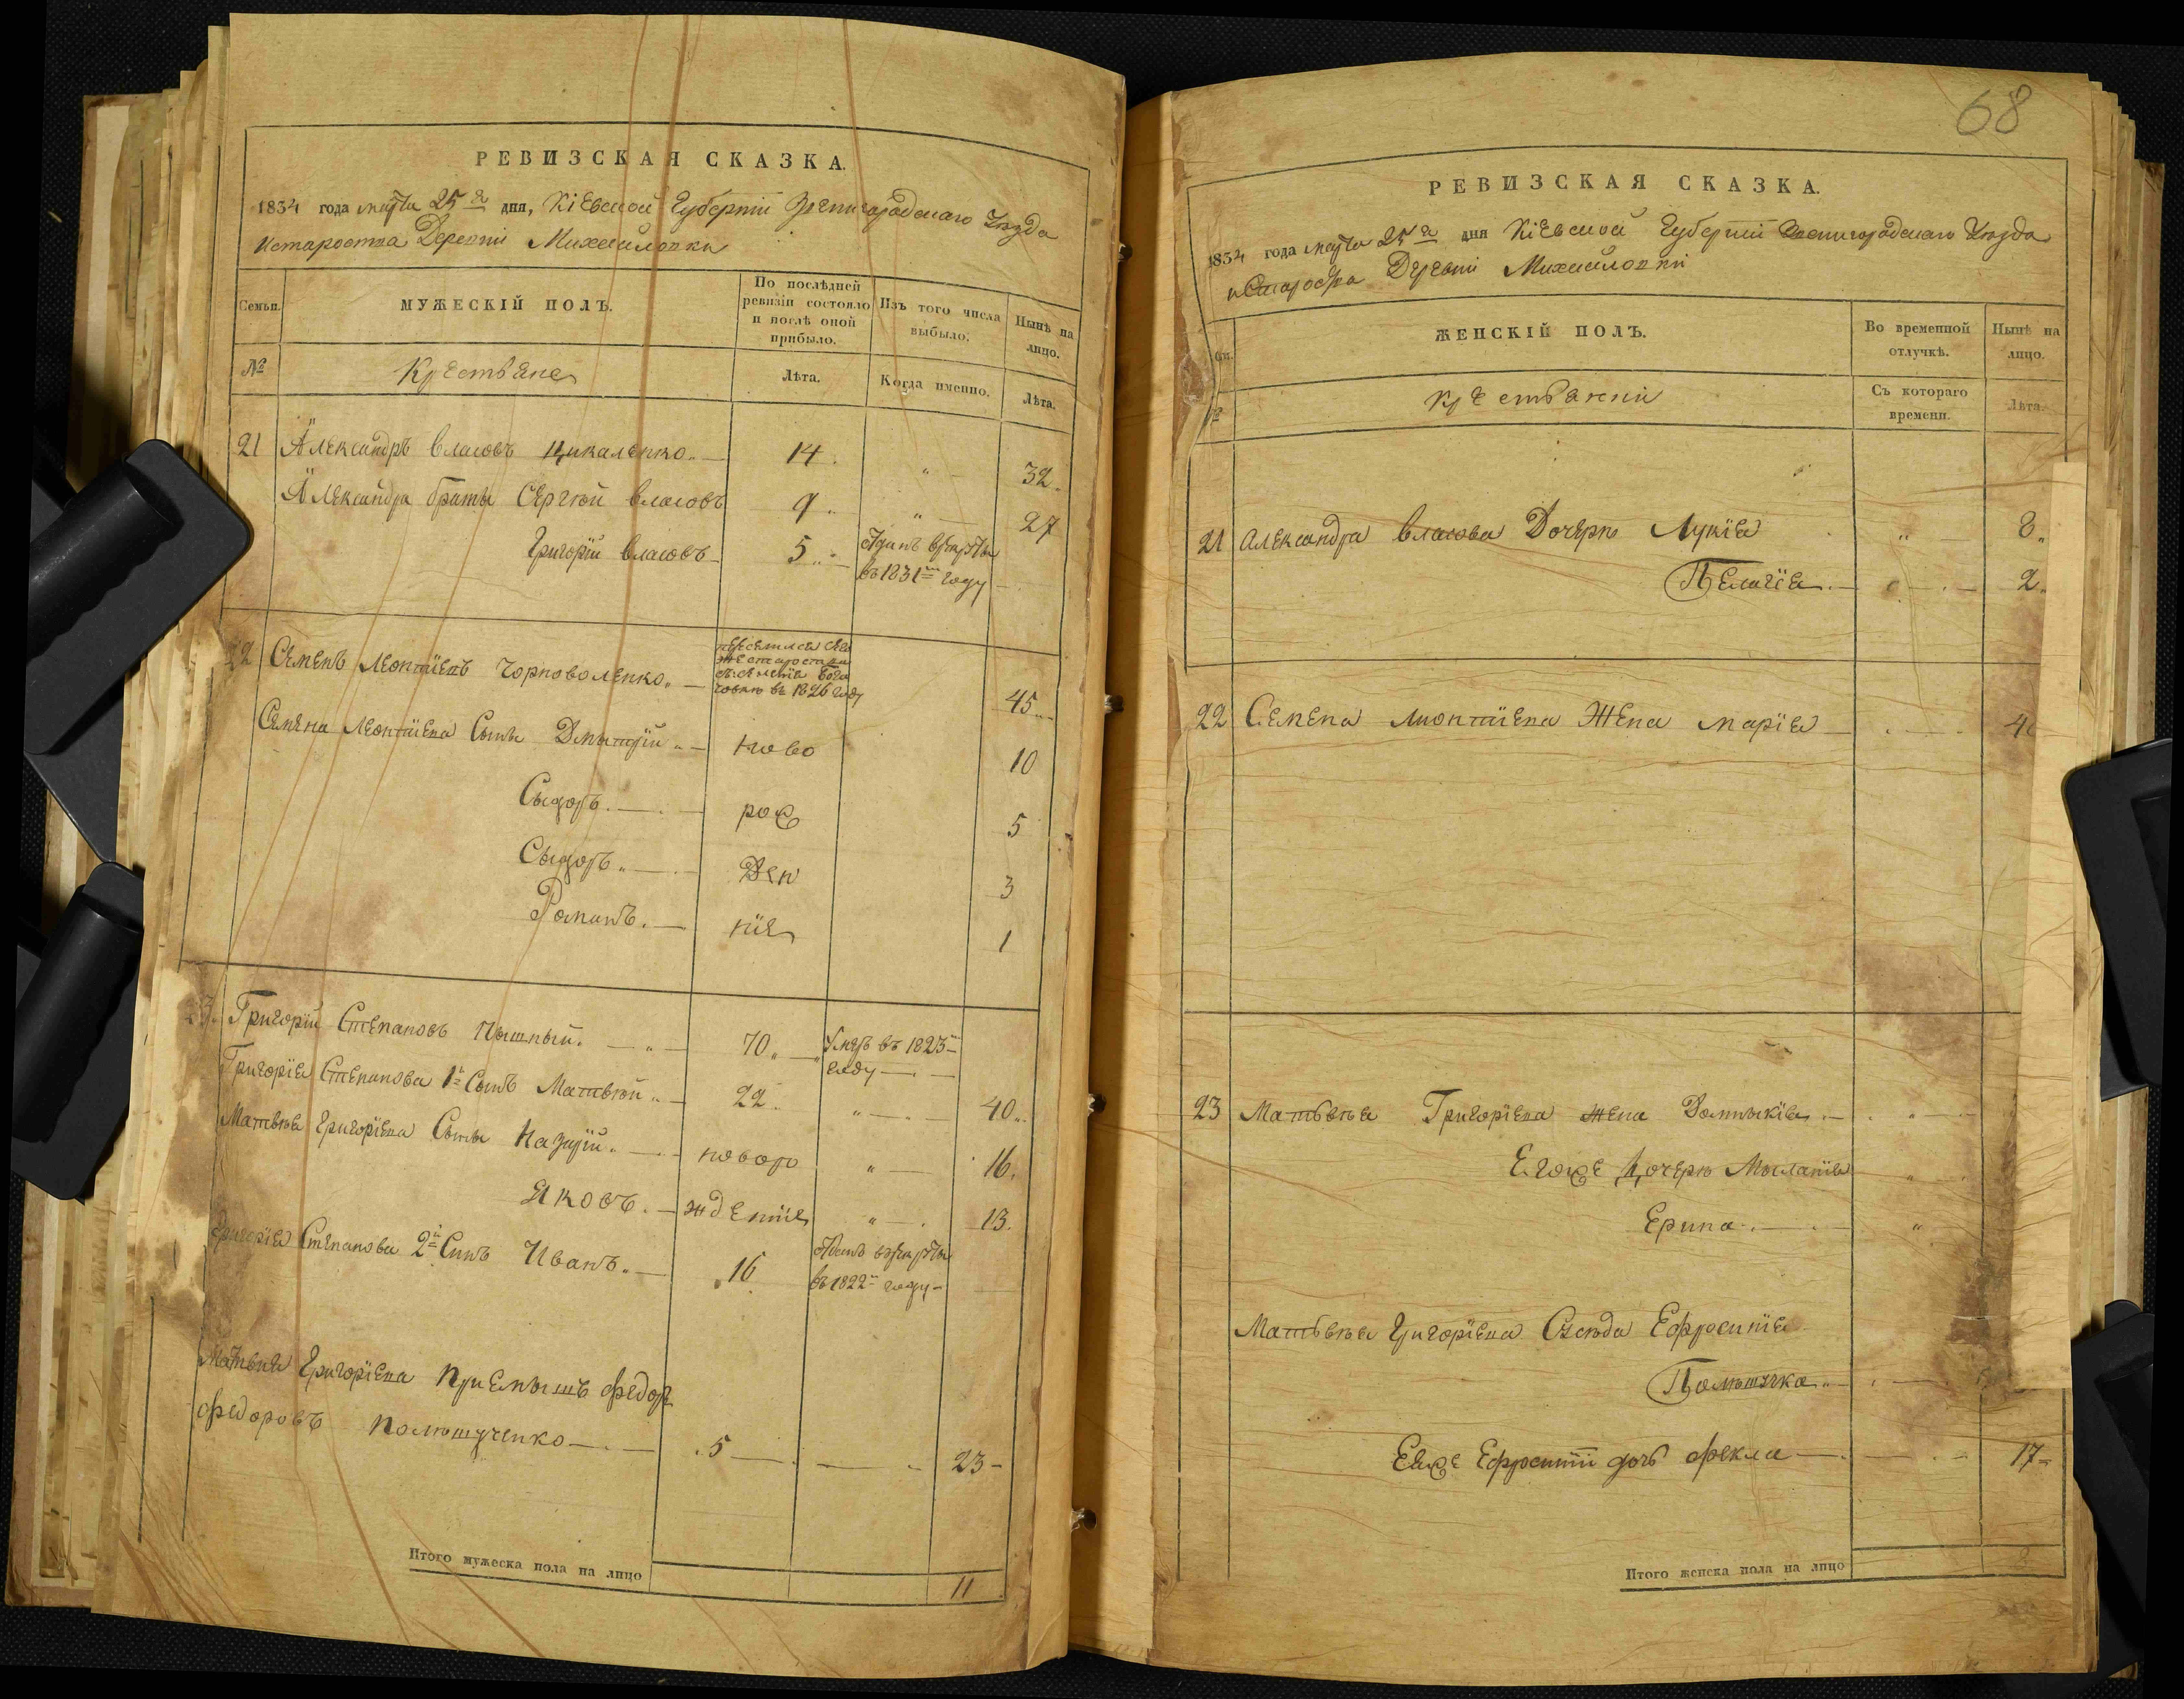 РЕВИЗСКАЯ СКАЗКА.
1834 года марта 25го дня, Кіевской Губерніи Звенигородскаго Уезда
Истароства Деревни Михайловки
Семьи.
МУЖЕСКІЙ ПОЛЪ.
По послѣдней ревизіи состояло и послѣ оной прибыло.
Изъ того числа выбыло.
Нынѣ на лицо.
№
Крестьяне
Лѣта.
Когда именно.
Лѣта.
21 Александръ Власовъ Цикаленко 14. " 32.
Александра братья Сергѣй Власовъ 9 " 27
Григорій Власовъ 5 Отданъ врекруты
въ 1831м году
22 Семенъ Леонтіевъ Чорноволенко
въ 1826 году 45
Семена Леонтіева Сыны Дмытрій ново 10
Сыдоръ рож 5
Сыдоръ ден 3
Романъ ніе 1
23. Григорій Степановъ Пышный 70 Умеръ въ 1823м
году
Григорія Степанова 1й Сынъ Матвѣй 22 " 40
Матвѣя Григоріева Сыны Назарій новоро " 16.
Яковъ жденніе " 13.
Григорія Степанова 2й Сынъ Иванъ 16 Отданъ врекруты
въ 1822м году
Матвѣя Григоріева Приемышъ Федоръ
Федоровъ Полтшученко 5 23
Итого мужеска пола на лицо 11
68
РЕВИЗСКАЯ СКАЗКА.
1834 года марта 25го дня Кіевской Губерніи Звенигородскаго Уезда
Староства Деревни Михайловки
ЖЕНСКІЙ ПОЛЪ.
Во временной отлучкѣ.
Нынѣ на лицо.
№
Крестьянки
Съ котораго времени.
Лѣта.
21 Александра Власова Дочери Лукія " 8
Пелагія 2
22 Семена Лионтіева Жена Марія 4
23 Матвѣя Григоріева жена Домникія "
Егоже Дочери Миланія "
Ерина "
Матвѣя Григоріева Сусѣда Ефросинія
Егоже Ефросиніи дочь Фекла 17
Итого женска пола на лицо